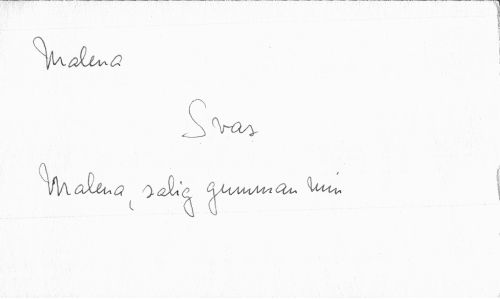 Malena
Svas
Malena, salig gumman min